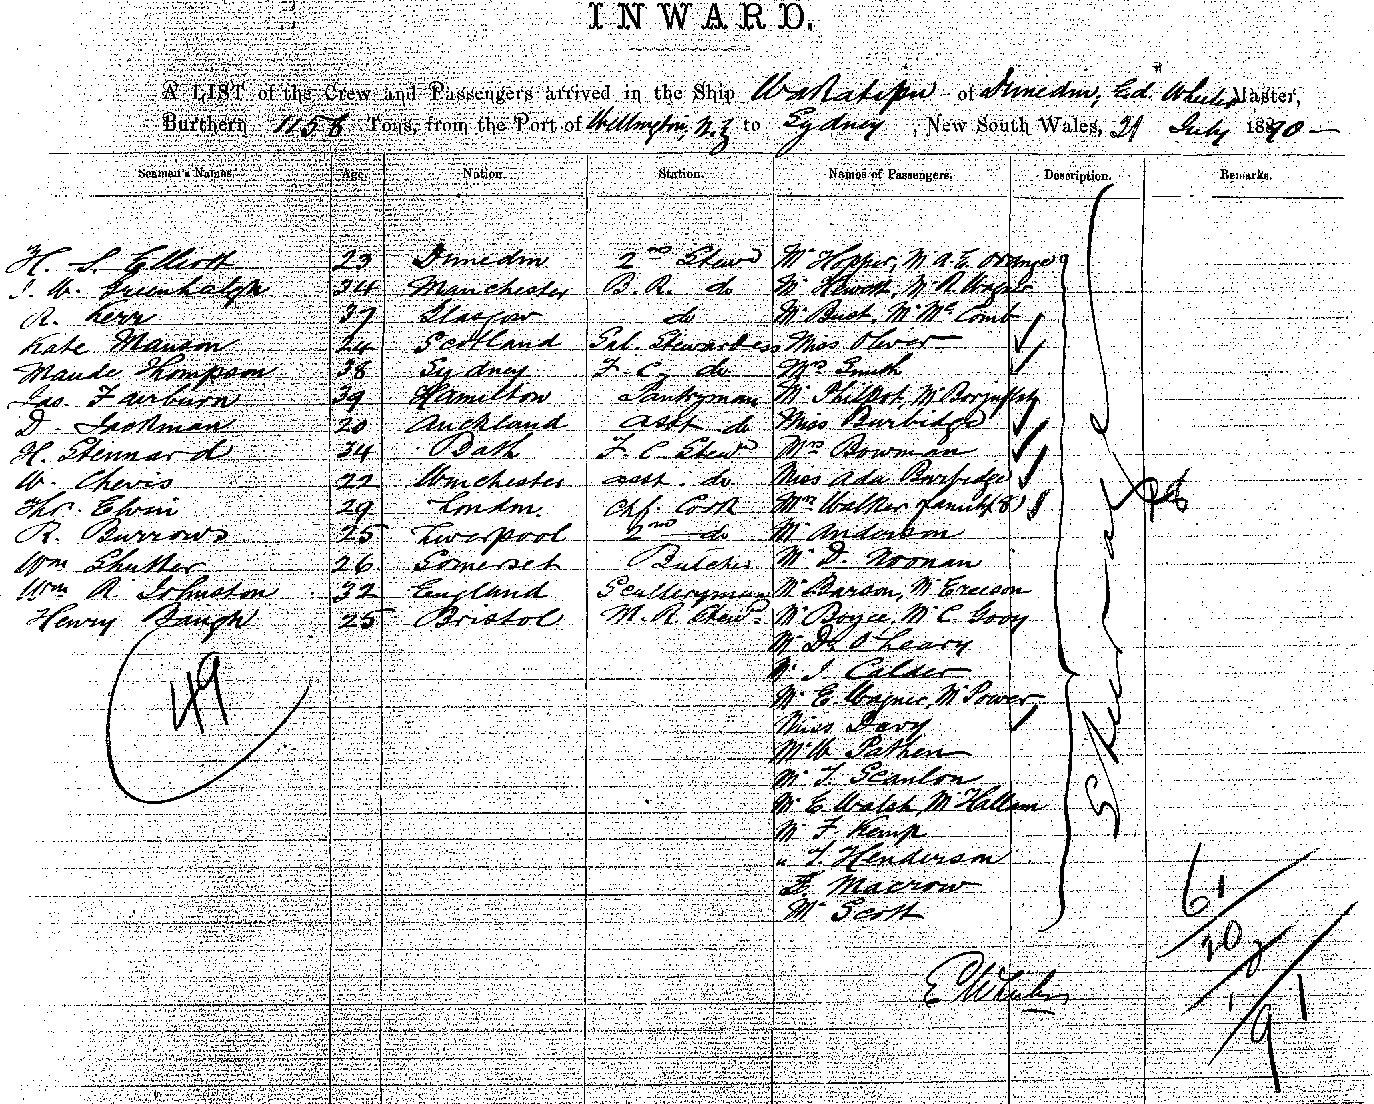 INWARD.
A LIST of the Crew and Passengers arrived in the Ship Wakatipu of Dunedin, Ed. Wheeler Master,
Burthern 1158 Tons, from the Port of Wellington, N.Z to Sydney, New South Wales, 21 July 1890
Seamen's Names. Age. Nation. Station. Names of Passengers. Description. Remarks.
H. S. Elliott 23 Dunedin 2nd Stewd Mr Hopper, Mr A. E. Orange
J. W. Greenhalgh 34 Manchester B. R. do Mr Howorth, Mr R Wagner
R. Kerr 37 Glasgow do Mr Buet, Mr McComb
Kate Manson 24 Scotland Sal. Stewardess Miss Oliver
Maude Thompson 38 Sydney F C do Mrs Smith
Jas. Fairburn 39 Hamilton Pantryman Mr Philpot, Mr
D. Jackman 20 Auckland asst do Miss Burbidge
H. Stennard 34 Bath F. C. Stewd Mrs Bowman
W. Chevis 22 Winchester asst. do Miss Ada Burbidge
Thos. Elvin 29 London. Chf. Cook Mrs Walker family (8)
R. Burrows 25 Liverpool 2nd do Mr Anderson
Wm Shutter 26 Somerset Butcher Mr D. Noonan
Wm R. Johnston 32 England Sculleryman Mr Barson, Mr Ereeson
Henry Baugh 25 Bristol M. R. Stewd. Mr Boyce, Mr C. Gooy
Mr D. O'Leary
Mr J. Calder
Mr E. Wagner, Mr Power,
Miss Davy
Mr W. Pathen
Mr T. Scanlon
Mr E. Walsh, Mr Hallam
Mr F. Kemp
" T. Henderson
F. Macrow
Mr Scott
Steerage
49
61
20
1
91
E Wheeler